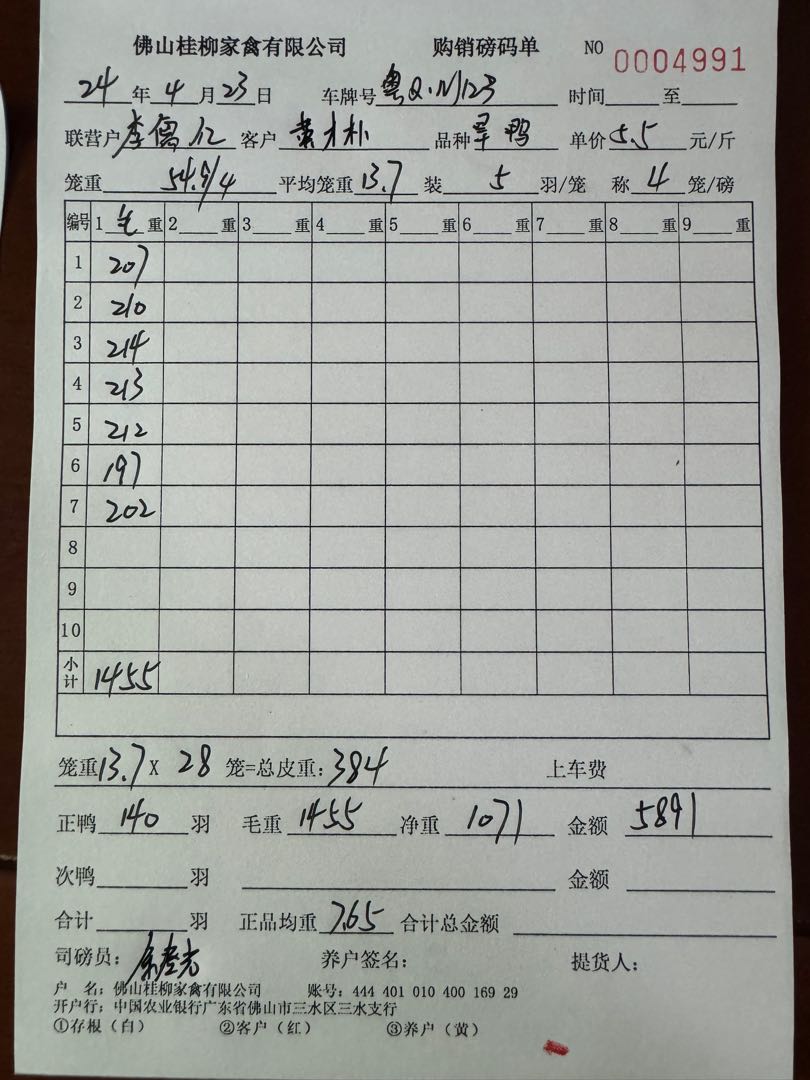 佛山桂柳家禽有限公司 购销磅码单 NO 0004991
24年4月23日 车牌号粤Q·N123 时间 至
联营户李儒亿 客户 品种旱鸭 单价5.5元/斤
笼重54.9/4 平均笼重13.7 装5羽/笼 称4笼/磅
编号 1毛重 2 重 3 重 4 重 5 重 6 重 7 重 8 重 9 重
1 207
2 210
3 214
4 213
5 212
6 197
7 202
8
9
10
小计 1455
笼重13.7X28笼=总皮重:384 上车费
正鸭140羽 毛重1455 净重1071 金额5891
次鸭 羽 金额
合计 羽 正品均重7.65 合计总金额
司磅员: 养户签名: 提货人:
户 名:佛山桂柳家禽有限公司 账号:444 401 010 400 169 29
开户行:中国农业银行广东省佛山市三水区三水支行
①存根(白) ②客户(红) ③养户(黄)